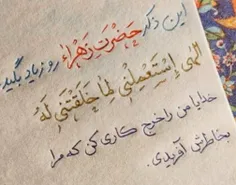 این ذکر حَضْرَتِ زَهْراء رو زیاد بگید
الهی اِسْتَعْمِلْنِی لِما خَلَقْتَنِی لَهُ
خدایا من را خرج کاری کن که مرا
بخاطرش آفریدی.